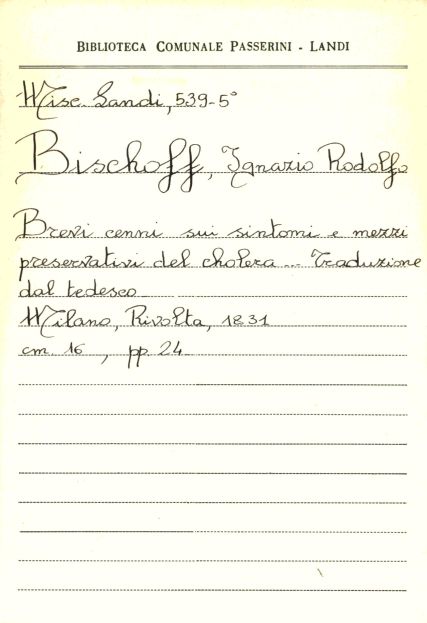 BIBLIOTECA COMUNALE PASSERINI - LANDI
Misc. Landi, 539-5°
Bischoff, Ignazio Rodolfo
Brevi cenni sui sintomi e mezzi
preservativi del cholera ... Traduzione
dal tedesco
Milano, Rivolta, 1831
cm. 16, pp. 24